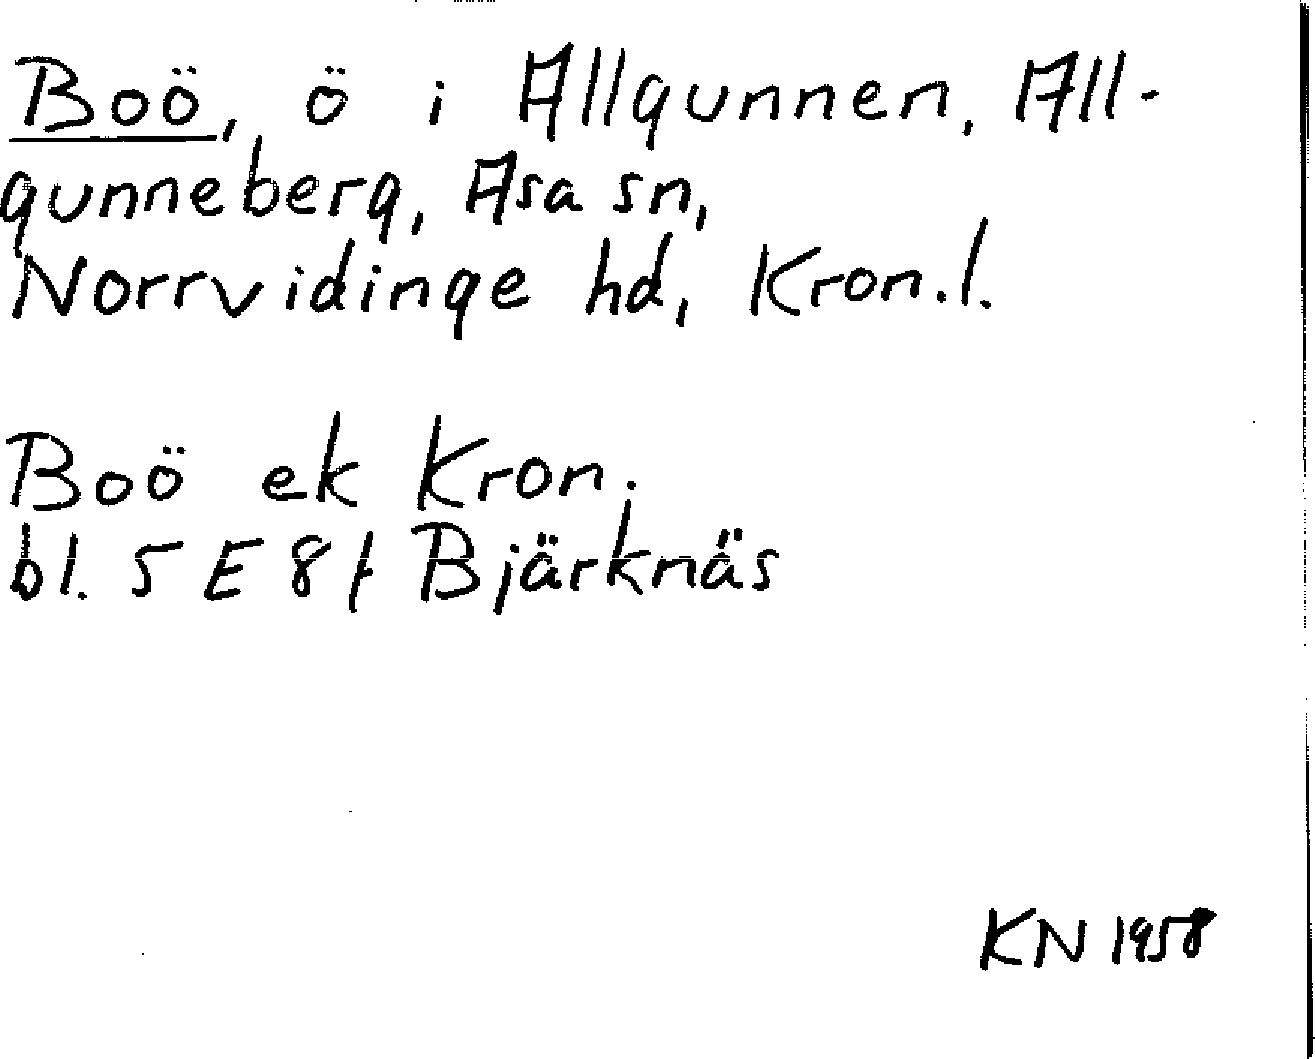 Boö, ö i Allgunnen, All-
gunneberg, Asa sn,
Norrvidinge hd, Kron.l.
Boö ek Kron.
bl. 5 E 8f Bjärknäs
KN 1958